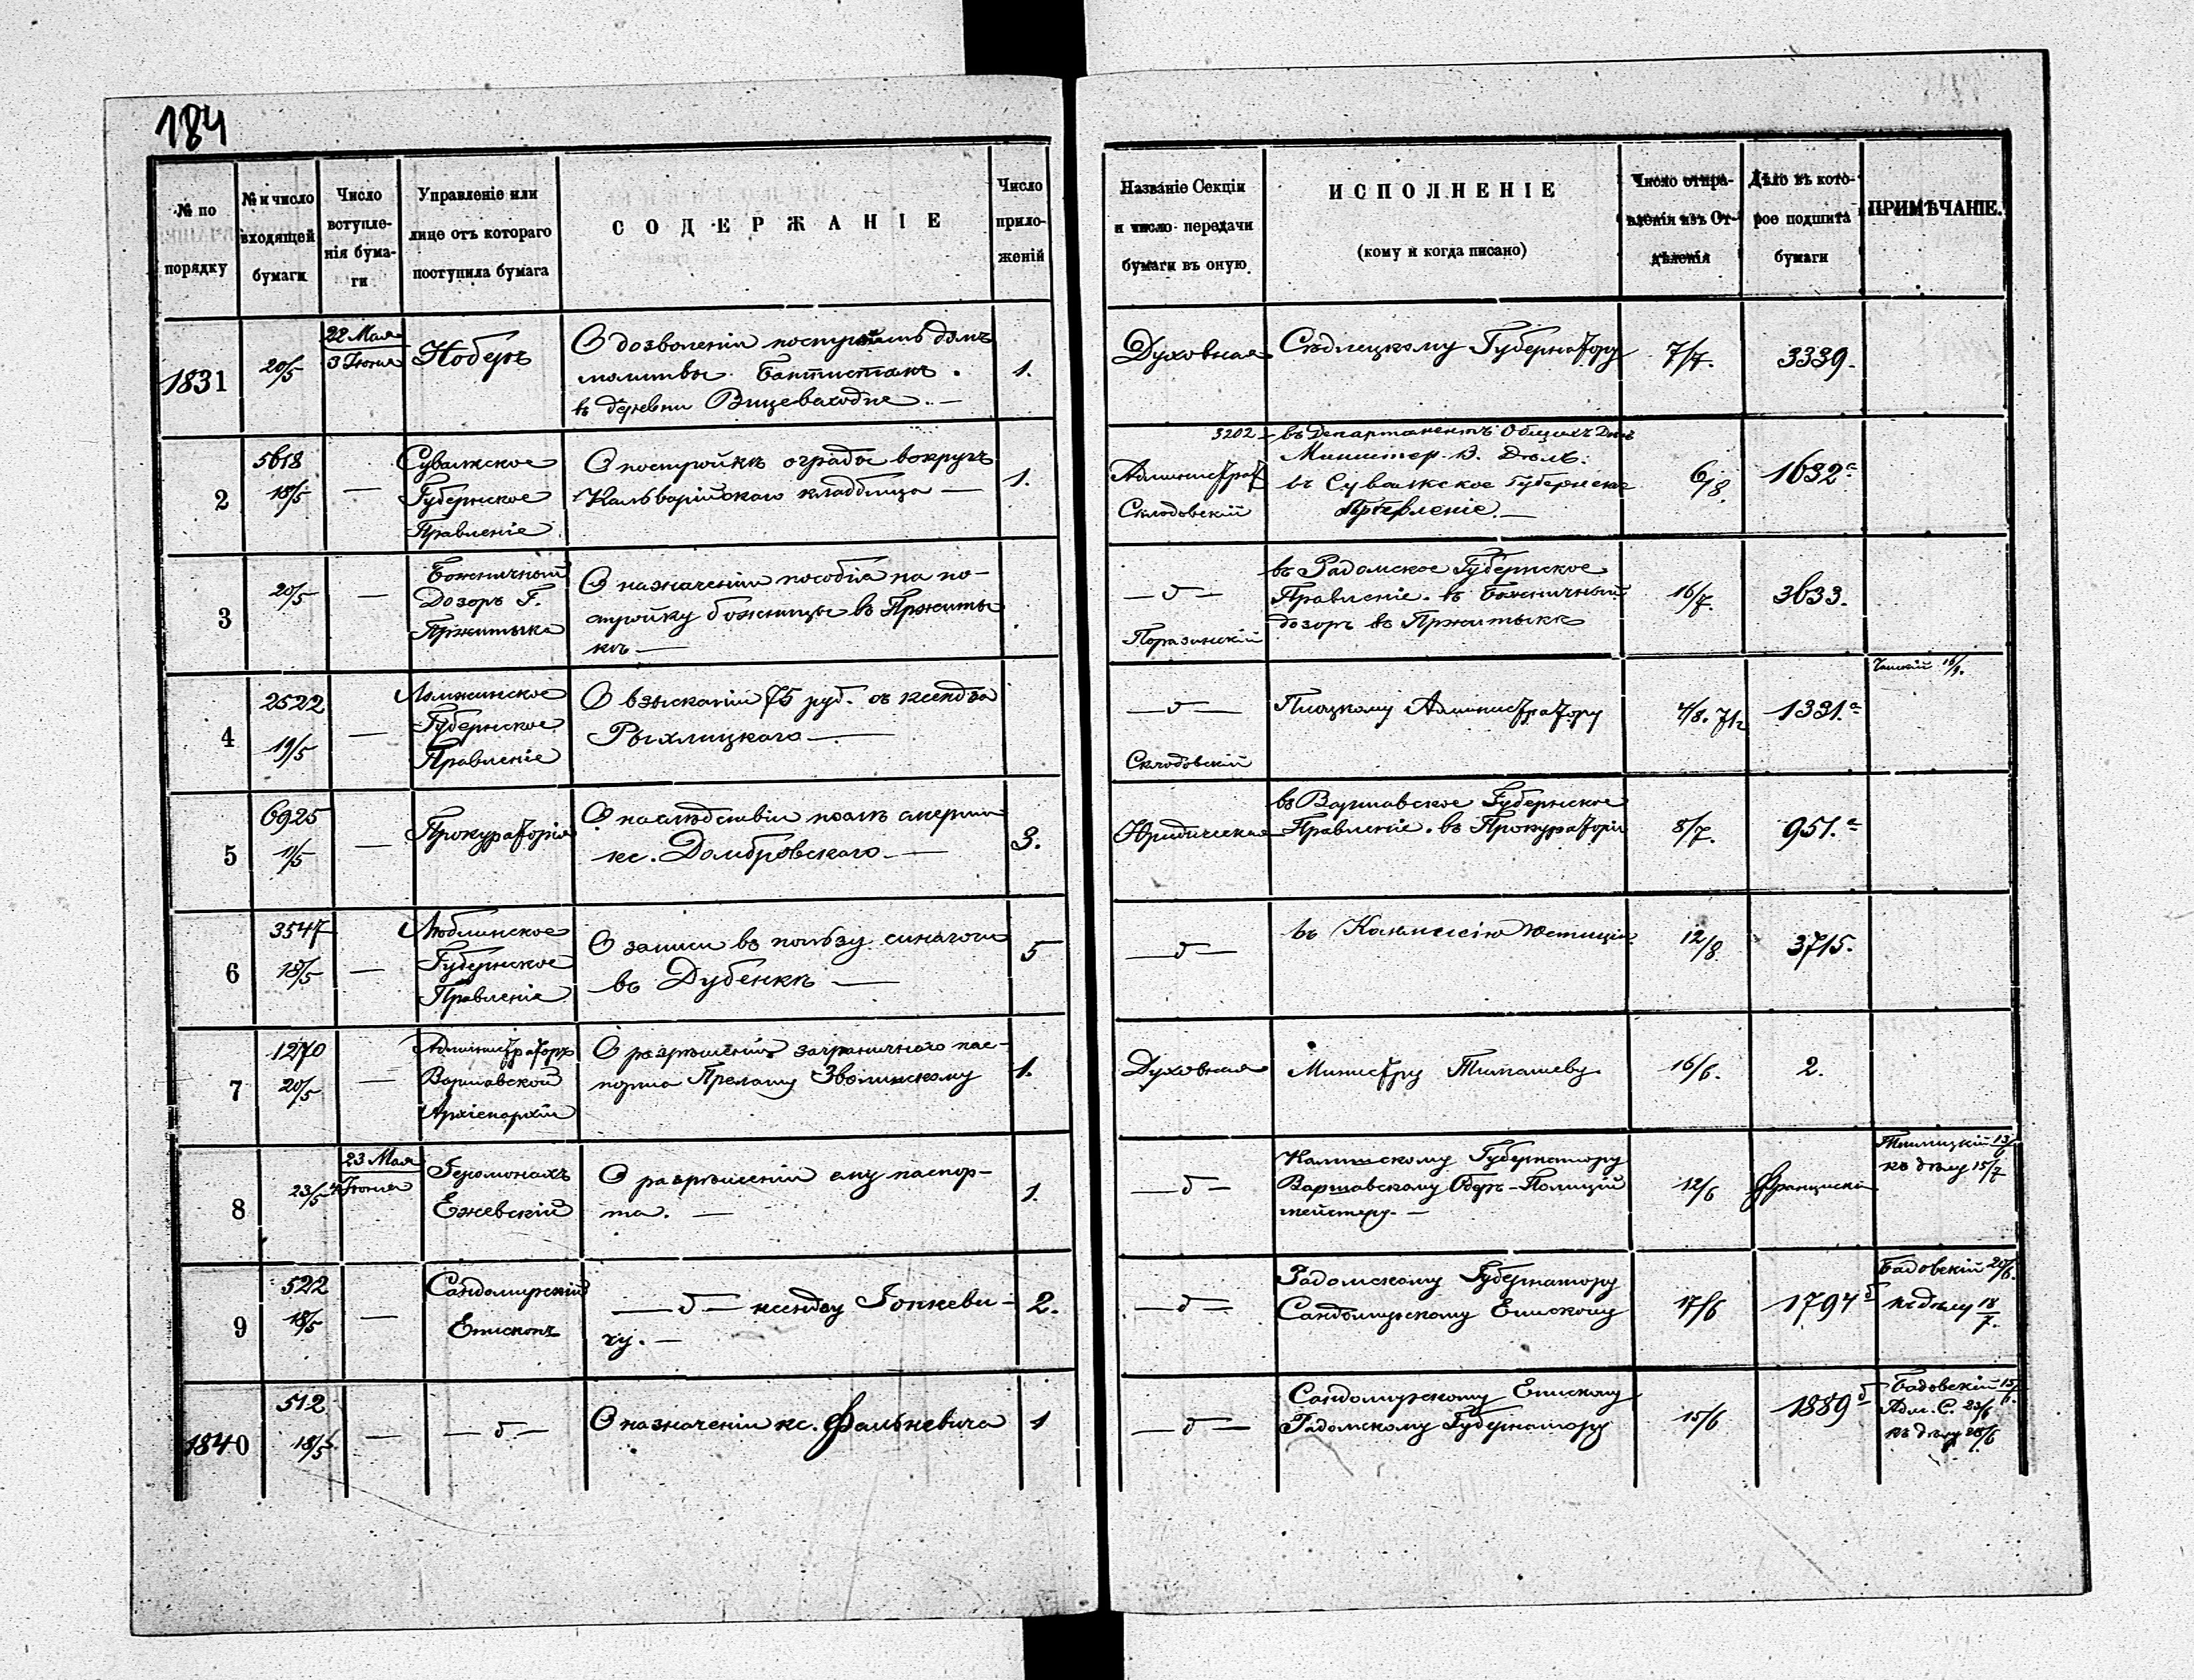 184
№ по порядку
№ и число входящей бумаги
Число вступленія бумаги
Управленіе или лице отъ котораго поступила бумага
СОДЕРЖАНІЕ
Число приложеній
Названіе Секціи и число передачи бумаги въ оную
ИСПОЛНЕНІЕ
(кому и когда писано)
Число отправленія изъ Отдѣленія
Дѣло въ которое подшита бумаги
ПРИМѢЧАНІЕ.
1831
20/5
22 Мая
3 Іюня
Ноберъ
О дозволеніи построить домъ
молитвы Баптистамъ
въ деревни
1.
Духовная
Сѣдлецкому Губернатору
7/7.
3339.
2
5618
18/5
—
Сувалкское
Губернское
Правленіе
О постройкѣ ограды вокругъ
Кальварійскаго кладбища —
1.
Администрат
Склодовскій
3202 - въ Департаментъ Общихъ Дѣлъ
Министер. В. Дѣлъ.
въ Сувалкское Губернское
Правленіе. —
6/8.
1632 а
3
20/5
—
Божничный
Дозоръ Г.
Пржитыка
О назначеніи пособія на по-
стройку божницы въ Пржиты
кѣ —
— д —
Поразинскій
въ Радомское Губернское
Правленіе. въ Божничный
дозоръ въ Пржитыкѣ
16/7.
3633.
4
2522
19/5
—
Ломжинское
Губернское
Правленіе
О взысканіи 75 руб. съ ксендза
Рыхлицкаго —
— д —
Склодовскій
Плоцкому Администратору
4/8. 71 г
1331. а
5
6925
11/5
—
Прокураторія
О наслѣдствіи послѣ смерти
кс. Домбровскаго —
3.
Юридическая
въ Варшавское Губернское
Правленіе. въ Прокураторію
8/7.
951. а
6
3547
18/5
—
Люблинское
Губернское
Правленіе
О записи въ пользу синагоги
въ Дубенкѣ —
5
— д —
въ Коммиссію Юстиціи
12/8
3715.
7
1270
20/5
—
Администраторъ
Варшавской
Архіепархіи
О разрѣшеніи заграничнаго пас-
порта Прелату Зволинскому
1.
Духовная
Министру Тимашеву
16/6.
2.
8
23/5
23 Мая
4 Іюня
Іеромонахъ
Ежевскій
О разрѣшеніи ему паспор-
та. —
1.
— д —
Калишскому Губернатору
Варшавскому Оберъ-Полицій
мейстеру. —
12/6
къ дѣлу 15/7
9
522
18/5
—
Сандомирскій
Епископъ
— д — ксендзу Іопкеви-
чу. —
2.
— д —
Радомскому Губернатору
Сандомирскому Епископу
17/6
1794 б
Бадовскій 20/6.
къ дѣлу 18/7.
1840
512
18/5.
—
— д —
О назначеніи кс. Фалькевича
1
— д —
Сандомирскому Епископу
Радомскому Губернатору
15/6
1889 б
Бадовскій 15/6.
Адм. С. 23/6
къ дѣлу 28/6